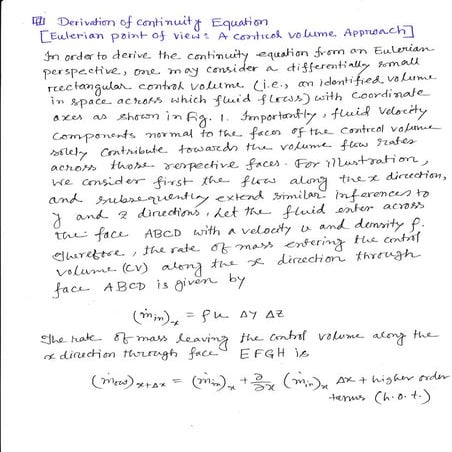 Derivation of Continuity Equation
[Eulerian point of view: A control volume Approach]
In order to derive the continuity equation from an Eulerian
perspective, one may consider a differentially small
rectangular control volume (i.e., an identified volume
in space across which fluid flows) with coordinate
axes as shown in Fig. 1. Importantly, fluid velocity
components normal to the faces of the control volume
solely contribute towards the volume flow rates
across those respective faces. For illustration,
we consider first the flow along the x direction,
and subsequently extend similar inferences to
y and z directions. Let the fluid enter across
the face ABCD with a velocity u and density ρ.
Therefore, the rate of mass entering the control
volume (CV) along the x direction through
face ABCD is given by
(ṁin)x = ρu Δy Δz
The rate of mass leaving the control volume along the
x direction through face EFGH is
(ṁout)x+Δx = (ṁin)x + ∂/∂x (ṁin)x Δx + higher order
terms (h.o.t.)